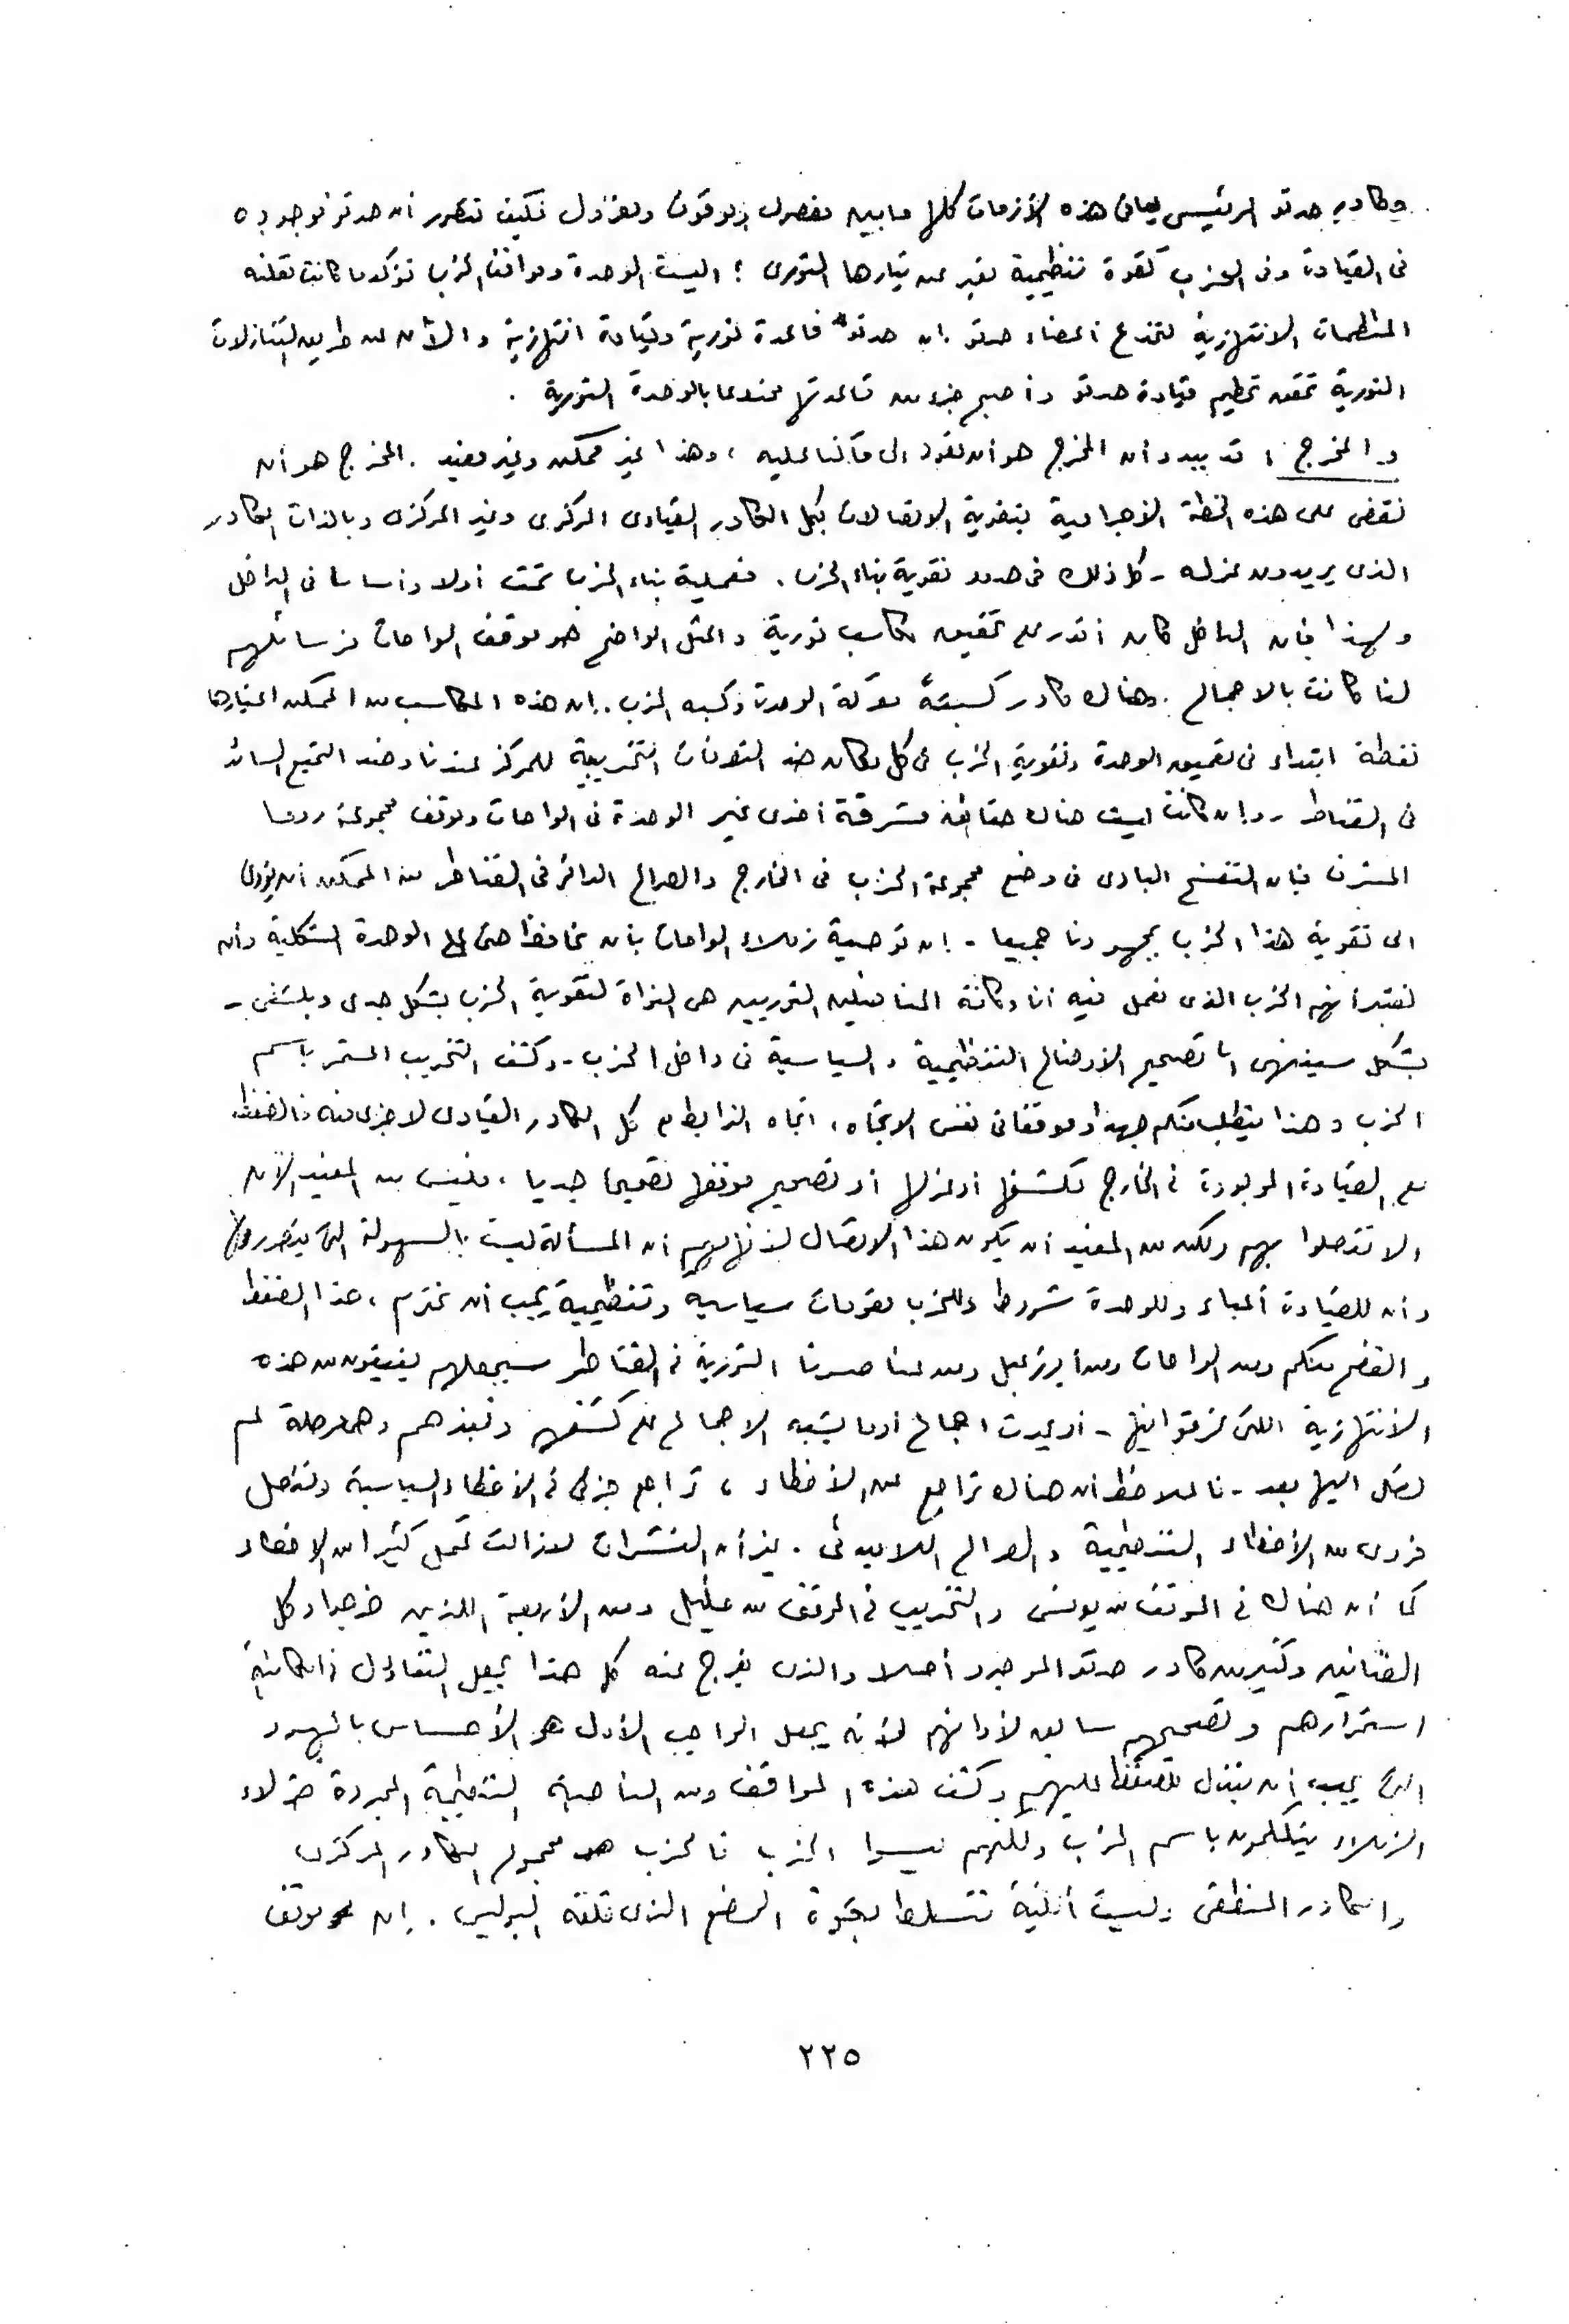 وكادر حدتو الرئيسى يعانى هذه الأزمات كلها ما بين مفصول وموقوف ومعزول فكيف نتصور أن حدتو موجودة
فى القيادة وفى الحزب كقوة تنظيمية تعبر عن تيارها الثورى ؟ اليست الوحدة ومواقف الحزب تؤكد ما كانت تعلنه
المنظمات الانتهازية لتخدع أعضاء حدتو . ان حدتو قاعدة ثورية وقيادة انتهازية والآن عن طريق التنازلات
الثورية تحقق تحطيم قيادة حدتو وأصبح جزء من قاعدتها مخدوعا بالوحدة الثورية .
والمخرج : قد يبدو أن المخرج هو أن نعود الى ما كنا عليه ، وهذا غير ممكن وغير مفيد . المخرج هو أن
نقضى على هذه الخطة الاجرامية بتقوية الاتصالات بكل الكادر القيادى المركزى وغير المركزى وبالذات الكادر
الذى يريدون عزله - كل ذلك فى حدود تقوية بناء الحزب . فعملية بناء الحزب تمت أولا وأساسا فى الداخل
ولهذا فان الداخل كان أقدر على تحقيق مكاسب ثورية والمثل الواضح هو موقف الواحات فرسائلهم
لنا كانت بالاجماع . وهناك كادر كسبته معركة الوحدة وكسبه الحزب . ان هذه المكاسب من الممكن اعتبارها
نقطة ابتداء فى تعميق الوحدة وتقوية الحزب فى كل مكان ضد التصرفات التخريبية للمركز عندنا وضد التميع السائد
فى القناطر - وان كانت ليست هناك حقائق مشرقة أخرى غير الوحدة فى الواحات وموقف مجموعة روما
المشرف فان التفسخ البادى فى وضع مجموعة الحزب فى الخارج والصراع الدائر فى القناطر من الممكن أن يؤدى
الى تقوية هذا الحزب بمجهودنا جميعا - ان توصية زملاء الواحات بأن نحافظ حتى على الوحدة الشكلية وأن
نعتبر أنه الحزب الذى نعمل فيه أنا وكافة المناضلين الثوريين هى النواة لتقوية الحزب بشكل جدى وبلشفى -
بشكل سينتهى الى تصحيح الأوضاع التنظيمية والسياسية فى داخل الحزب - وكشف التخريب المستمر باسم
الحزب وهذا يتطلب منكم جهدا وموقفا فى نفس الاتجاه ، اتجاه الترابط مع كل الكادر القيادى لا جزء منه والضغط
على القيادة الموجودة فى الخارج لكشفها أو عزلها أو تصحيح موقفها تصحيحا جديا ، فليس من المفيد الآن
الا تتصلوا بهم ولكن من المفيد أن يكون هذا الاتصال لافهامهم أن المسألة ليست بالسهولة التى يتصورونها
وأن للقيادة أعباء وللوحدة شروط وللحزب مقومات سياسية وتنظيمية يجب أن تحترم ، هذا الضغط
والفضح منكم ومن الواحات ومن أبو زعبل ومن عناصرنا الثورية فى القناطر سيجعلهم يفيقون من هذه
الانتهازية التى غرقوا فيها - أو يحدث اجماع أو ما يشبه الاجماع على كشفهم ونبذهم وهى مرحلة لم
نصل اليها بعد - فالملاحظ أن هناك تراجع عن الأخطاء ، تراجع جزئى فى الأخطاء السياسية وتنصل
فردى من الأخطاء التنظيمية والصراع اللامبدئى . غير أن النشرات لازالت تحمل كثيرا من الأخطاء
كما أن هناك فى الموقف من يونس والتخريب فى الموقف من خليل ومن الأربعة الذين خرجوا وكل
الفنانين وكثير من كادر حدتو الموجود أصلا والذى يفرج عنه كل هذا يجعل التفاؤل بامكانية
استمرارهم وتصحيحهم سابق لأوانه لأنه يجعل الواجب الأول هو الأحساس بالجهود
التى يجب أن تبذل للضغط عليهم وكشف هذه المواقف ومن الناحية التنظيمية المجردة فهؤلاء
الزملاء يتكلمون باسم الحزب ولكنهم ليسوا الحزب فالحزب هو مجموع الكادر المركزى
والكادر المنطقى وليست أقلية تتسلط بقوة الوضع الذى خلقه البوليس . ان موقف
٢٢٥